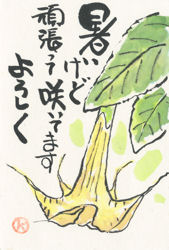 暑い
けど
頑張って咲いてます
よろしく